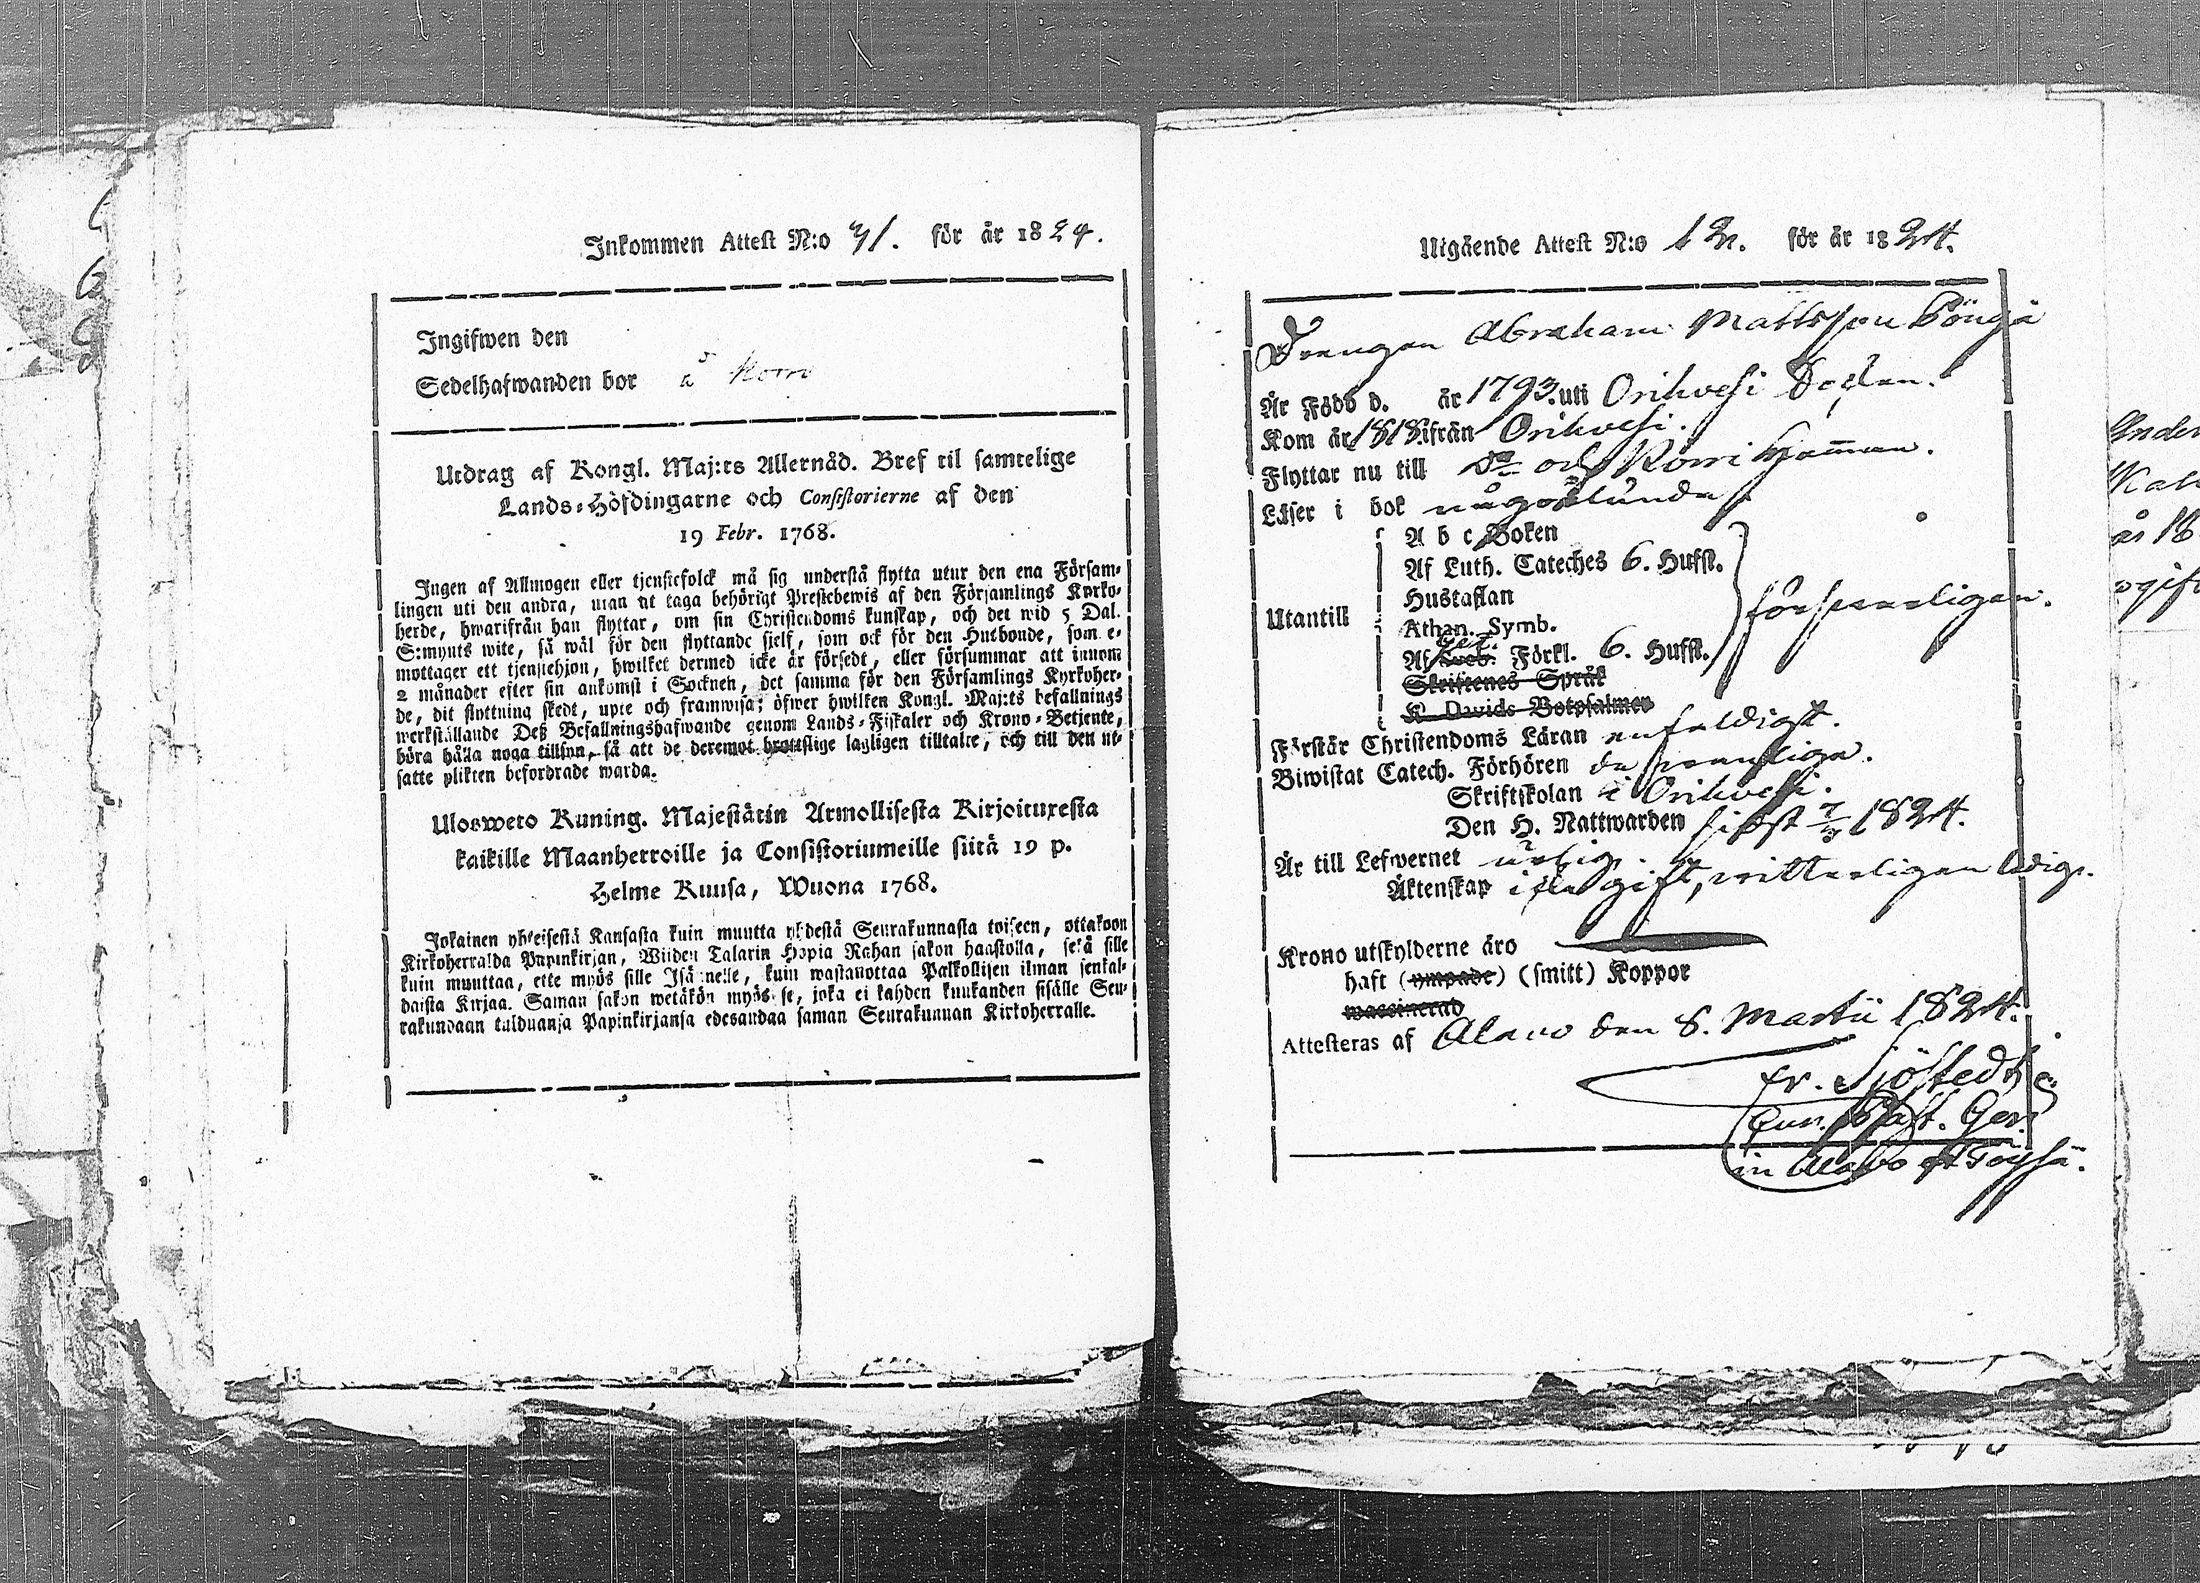 Inkommen Attest N:o 31. för år 1824.
Ingifwen den
Sedelhafwanden bor å Korro
Utdrag af Kongl. Maj:ts Allernåd. Bref til samtelige
Lands-Höfdingarne och Consistorierne af den
19 Febr. 1768.
Ingen af Allmogen eller tjenstefolck må sig understå flytta utur den ena Försam-
lingen uti den andra, utan at taga behörigt Prestebewis af den Församlings Kyrko-
herde, hwarifrån han flyttar, om sin Christendoms kunskap, och det wid 5 Dal.
S:mynts wite, så wäl för den flyttande sjelf, som ock för den Husbonde, som e-
mottager ett tjenstehjon, hwilket dermed icke är försedt, eller försummar att innom
2 månader efter sin ankomst i Socknen, det samma för den Församlings Kyrkoher-
de, dit flyttning skedt, upte och framwisa; öfwer hwilken Kongl. Maj:ts befallnings
werkställande Deß Befallningshafwande genom Lands-Fiskaler och Krono-Betjente,
böra hålla noga tillsyn, så att de deremot brottslige lagligen tilltalte, och till den ut-
satte plikten befordrade warda.
Ulosweto Kuning. Majestätin Armollisesta Kirjoituxesta
kaikille Maanherroille ja Consistoriumeille siitä 19 p.
Helme Kuusa, Wuona 1768.
Jokainen yhteisestä Kansasta kuin muutta yhdestä Seurakunnasta toiseen, ottakoon
Kirkoherralda Papinkirjan, Wiiden Talarin Hopia Rahan sakon haastolla, sekä sille
kuin muuttaa, ette myös sille Isännelle, kuin wastanottaa Palkollisen ilman senkal-
daista Kirjaa. Saman sakon wetäkön myös se, joka ei kahden kuukauden sisälle Seu-
rakundaan tulduanja Papinkirjansa edesandaa saman Seurakunnan Kirkoherralle.
Utgående Attest N:o 12. för år 1824.
Drengen Abraham Mattsson Pöngä
Är Född d. år 1793. uti Orihvesi Socken.
Kom år 1818. ifrån Orihvesi.
Flyttar nu till Do och Korri Hemman.
Läser i bok någorlunda
A b c Boken
Af Luth. Cateches 6. Hufst.
Hustaflan
Utantill Athan. Symb. försvarligen.
Af Sveb. Förkl. 6. Hufst.
Skriftenes Språk
K. Davids Botpsalmer
Förstår Christendoms Läran enfaldigt.
Biwistat Catech. Förhören de vanliga.
Skriftskolan i Orihvesi.
Den H. Nattwarden sidst 7/3 1824.
Är till Lefwernet ärlig.
Äktenskap icke gift, vitterligen ledig.
Krono utskylderne äro
haft (ympade) (smitt) Koppor
waccinerad
Attesteras af Alavo den 8. Martii 1824.
Fr. Sjöstedt
Cur. Past. Ger.
in Alavo et Töysä.